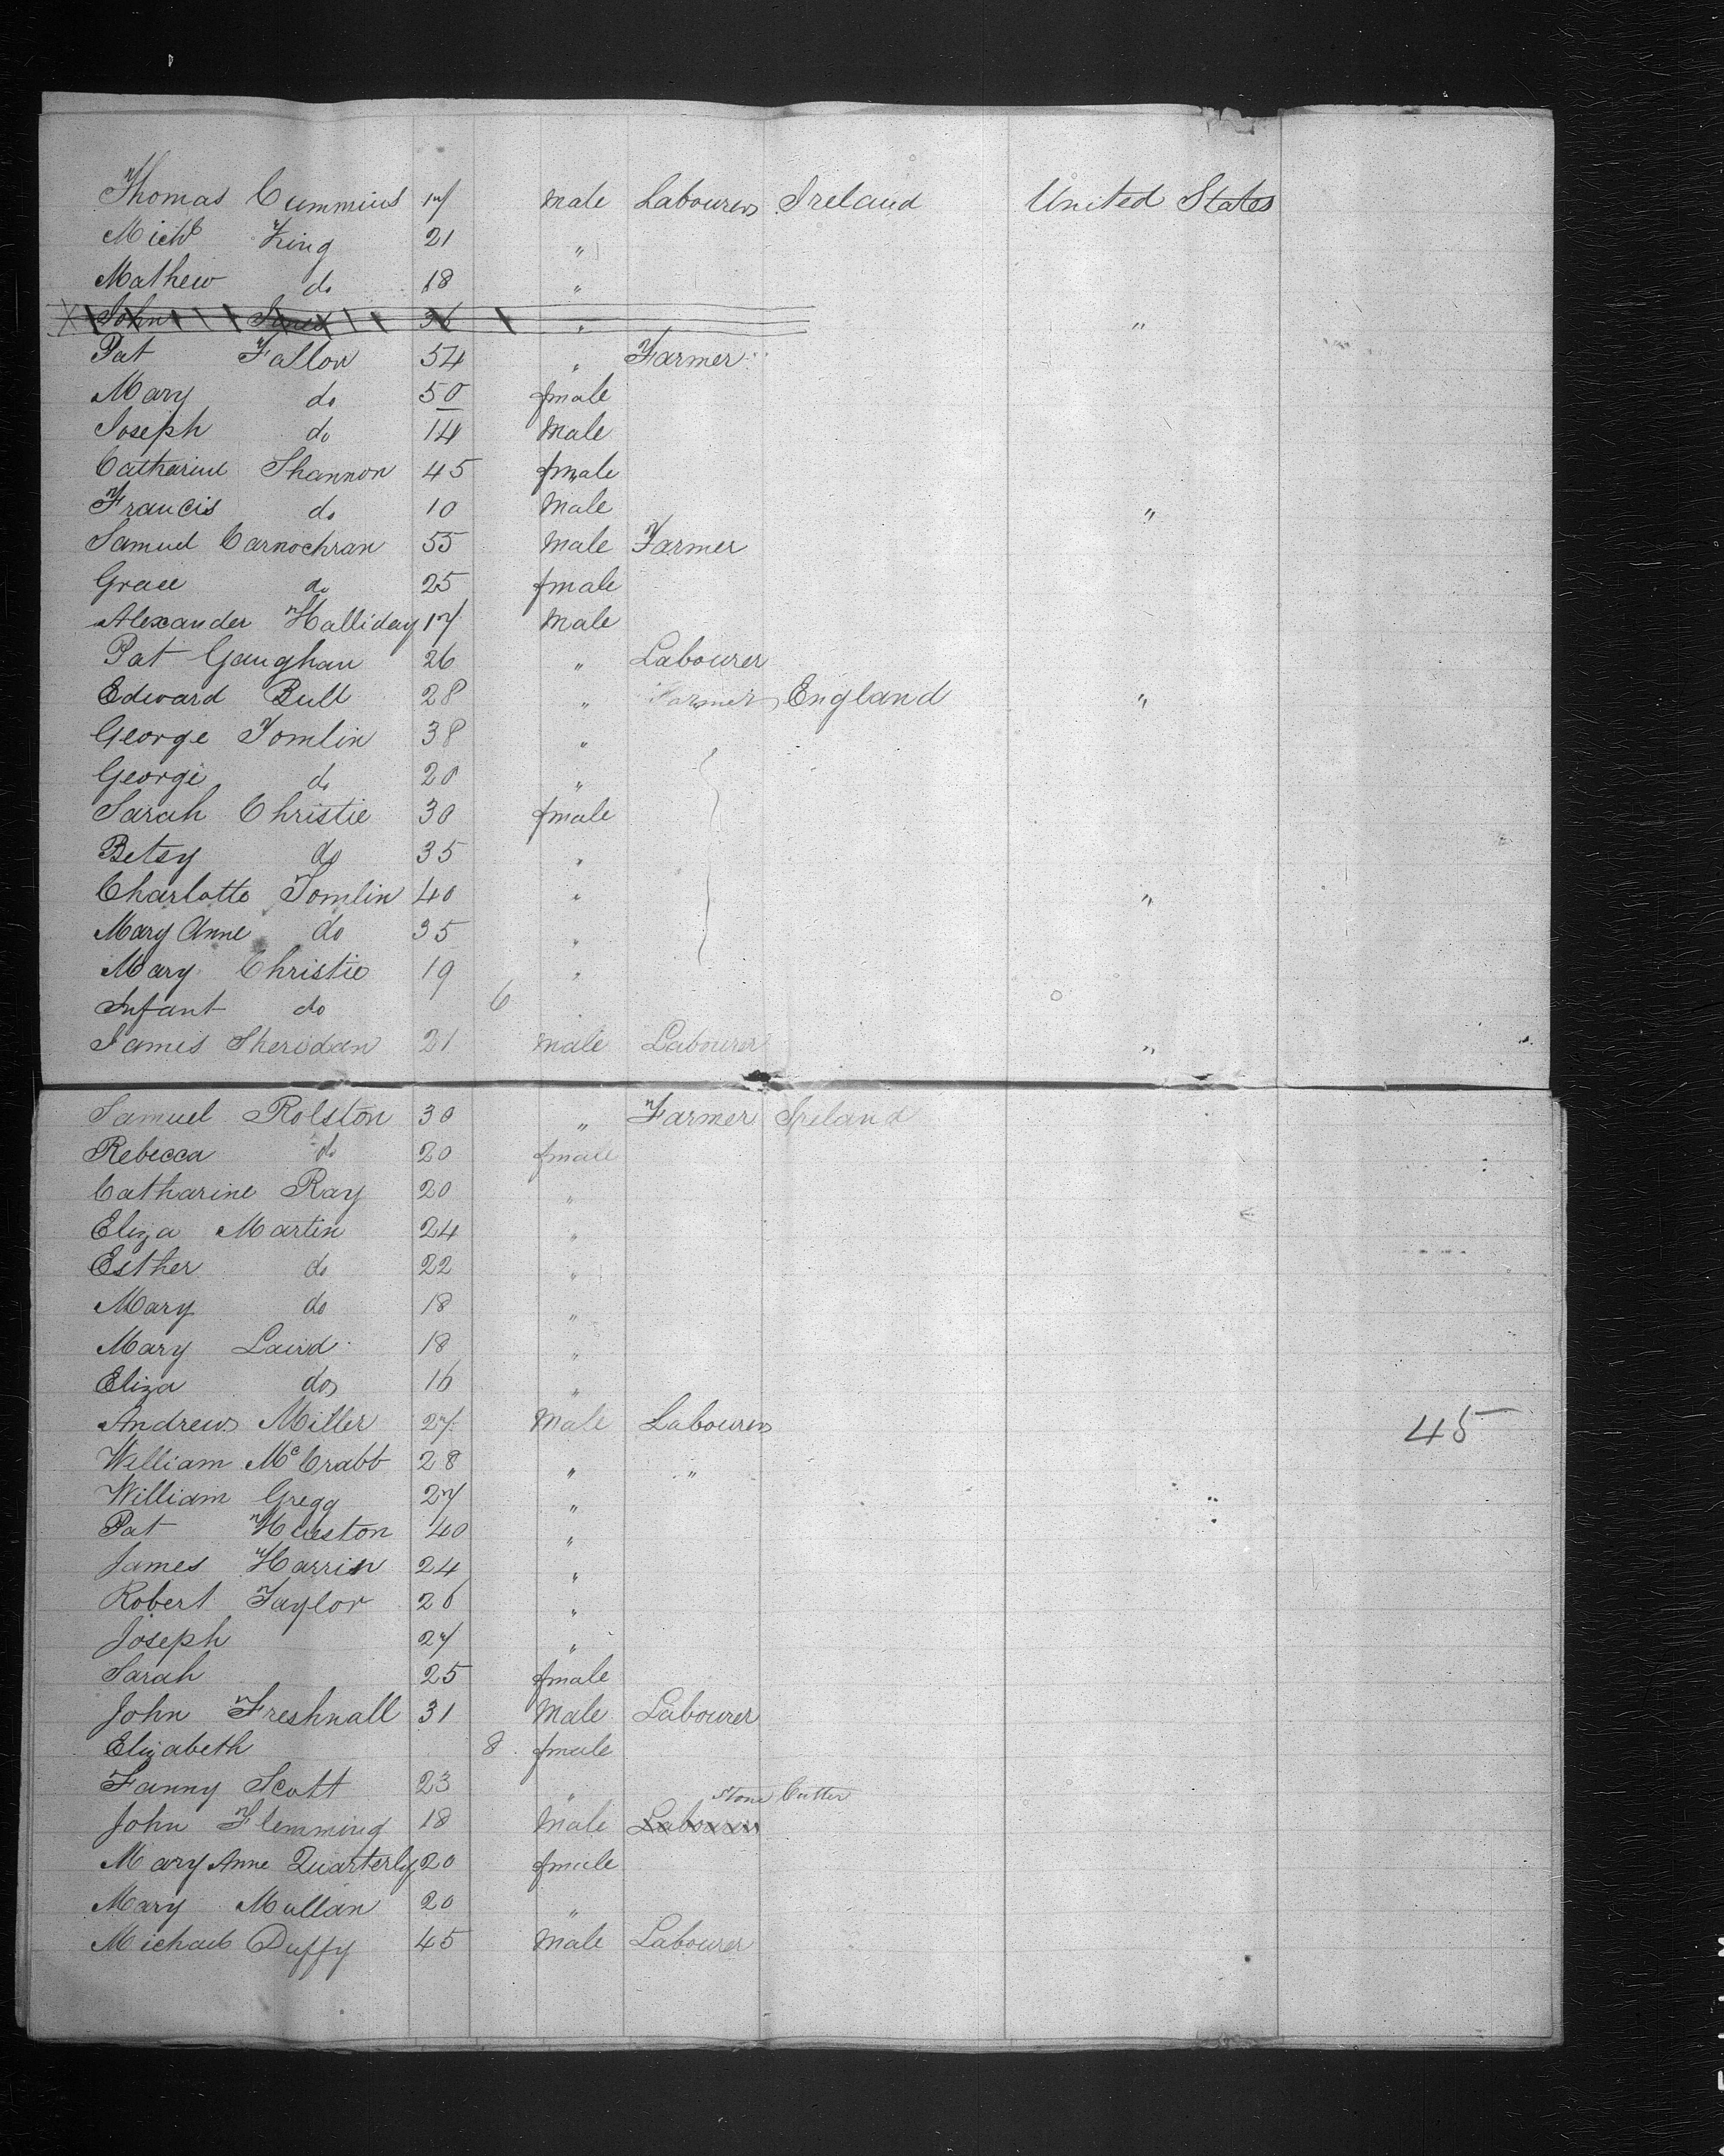 Thomas Cummins 17 Male Labourer Ireland United States
Michl King 21 "
Mathew do 18 "
John 36 " "
Pat Fallon 54 " Farmer
Mary do 50 fmale
Joseph do 14 Male
Catharine Shannon 45 fmale
Francis do 10 Male "
Samuel Carnochran 55 Male Farmer
Grace do 25 fmale
Alexander Halliday 17 Male
Pat Gaughan 26 " Labourer
Edward Bull 28 " Farmer England "
George Tomlin 38 "
George do 20 "
Sarah Christie 30 fmale
Betsy do 35 "
Charlotte Tomlin 40 " "
Mary Anne do 35 "
Mary Christie 19 "
Infant do 6
James Sheridan 21 Male Labourer "
Samuel Rolston 30 " Farmer Ireland
Rebecca do 20 fmale
Catharine Ray 20 "
Eliza Martin 24 "
Esther do 22 "
Mary do 18 "
Mary Laird 18 "
Eliza do 16 "
Andrew Miller 27 Male Labourer 45
William McCrabb 28 " "
William Gregg 27 "
Pat Huston 40 "
James Harrin 24 "
Robert Taylor 26 "
Joseph 27 "
Sarah 25 fmale
John Freshnall 31 Male Labourer
Elizabeth 8 fmale
Fanny Scott 23 "
Stone Cutter
John Flemming 18 Male Labourer
Mary Anne Quarterly 20 fmale
Mary Mullan 20 "
Michael Duffy 45 Male Labourer